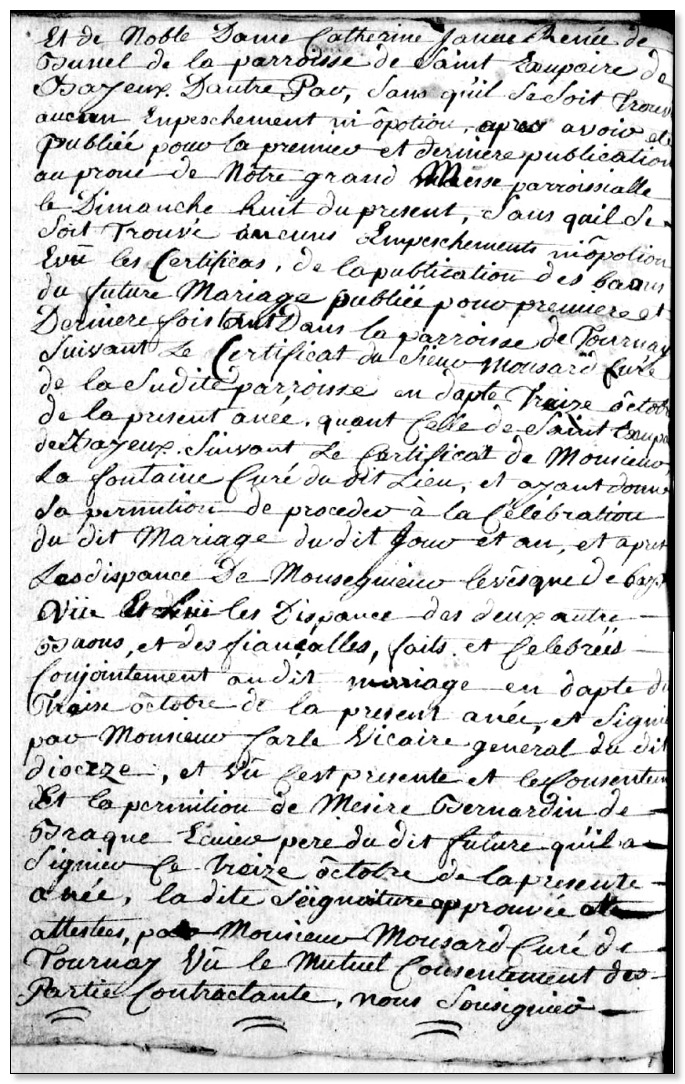 Et de Noble Dame Catherine Janne Renée de
Bunel de la parroisse de Saint Exupaire de
Bayeux. Dautre Par, Sans quil se soit Trouv
aucun Enpeschement ni ôpotion, apres avoir ete
Publiée pour la premier et derniere publication
au prone de Nôtre grand Messe parroissialle
le Dimanche huit du present, Sans quil se
soit Trouvé aucuns Empeschements ni ôpotion
Evû les Certificas, de la publication des bans
du future Mariage publiée pour premiere et
Derniere fois tant Dans la parroisse de Tournay
Suivant Le Certificat du Sieur Mousard Curé
de la Sudite parroisse en dapte Treize octobre
de la present anée, quant Celle de Saint Exupe
de Bayeux. Suivant Le Certificat de Monsieur
La fontaine Curé du dit Lieu, et ayant donné
Sa permition de proceder à la Célébration
du dit Mariage du dit Jour et an, et aprest
Les dispance De Monsegnieur levêsque de bay
Vûe Et les Dispance des deux autre
Baons, et des fiançalles, faits et Celebrées
Conjointement au dit mariage en dapte du
Treise octobre de la present anée, et Signé
par Monsieur Carle Vicaire general du dit
diocezze, et Vû Cest presente et le Consentem
Et la permition de Mesire Bernardin de
Braque Ecuier pere du dit future quil a
Signier Ce Treize octobre de la presente
anée, la dite Seignoiture approuvée
attestées, par Monsieur Mousard Curé de
Tournay Vû le Mutuel Consentement des
Partie Contractante, nous Sousignier